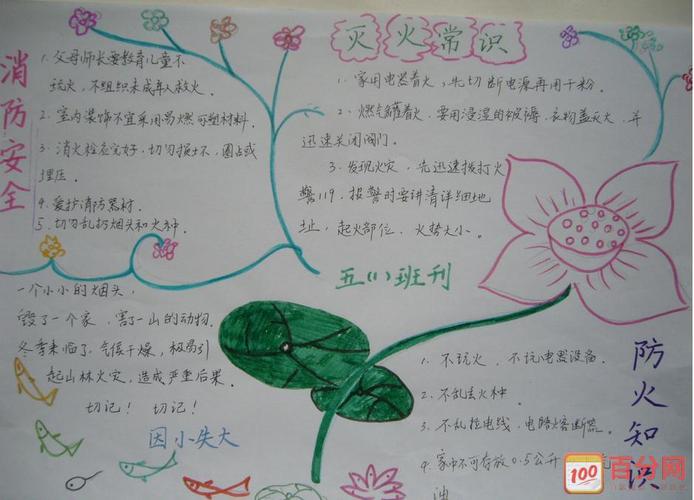 消防安全
1. 父母师长要教育儿童不
玩火，不组织未成年人救火。
2. 室内装饰不宜采用易燃可塑材料。
3. 消火栓应完好，切勿损坏，圈占或
埋压。
4. 爱护消防器材。
5. 切勿乱扔烟头和火种。
灭火常识
1. 家用电器着火，先切断电源再用干粉。
2. 燃气罐着火，要用浸湿的被褥、衣物盖灭火，并
迅速关闭阀门。
3. 发现火灾，先迅速拨打火
警119，报警时要讲清详细地
址，起火部位，火势大小。
五(1)班刊
一个小小的烟头，
毁了一个家，害了一山的动物。
冬季来临了，气候干燥，极易引
起山林火灾，造成严重后果。
切记！ 切记！
因小失大
防火知识
1. 不玩火，不玩电器设备。
2. 不乱丢火种。
3. 不乱拉电线，电路熔断器。
4. 家中不可存放0.5公升
油
100 百分网